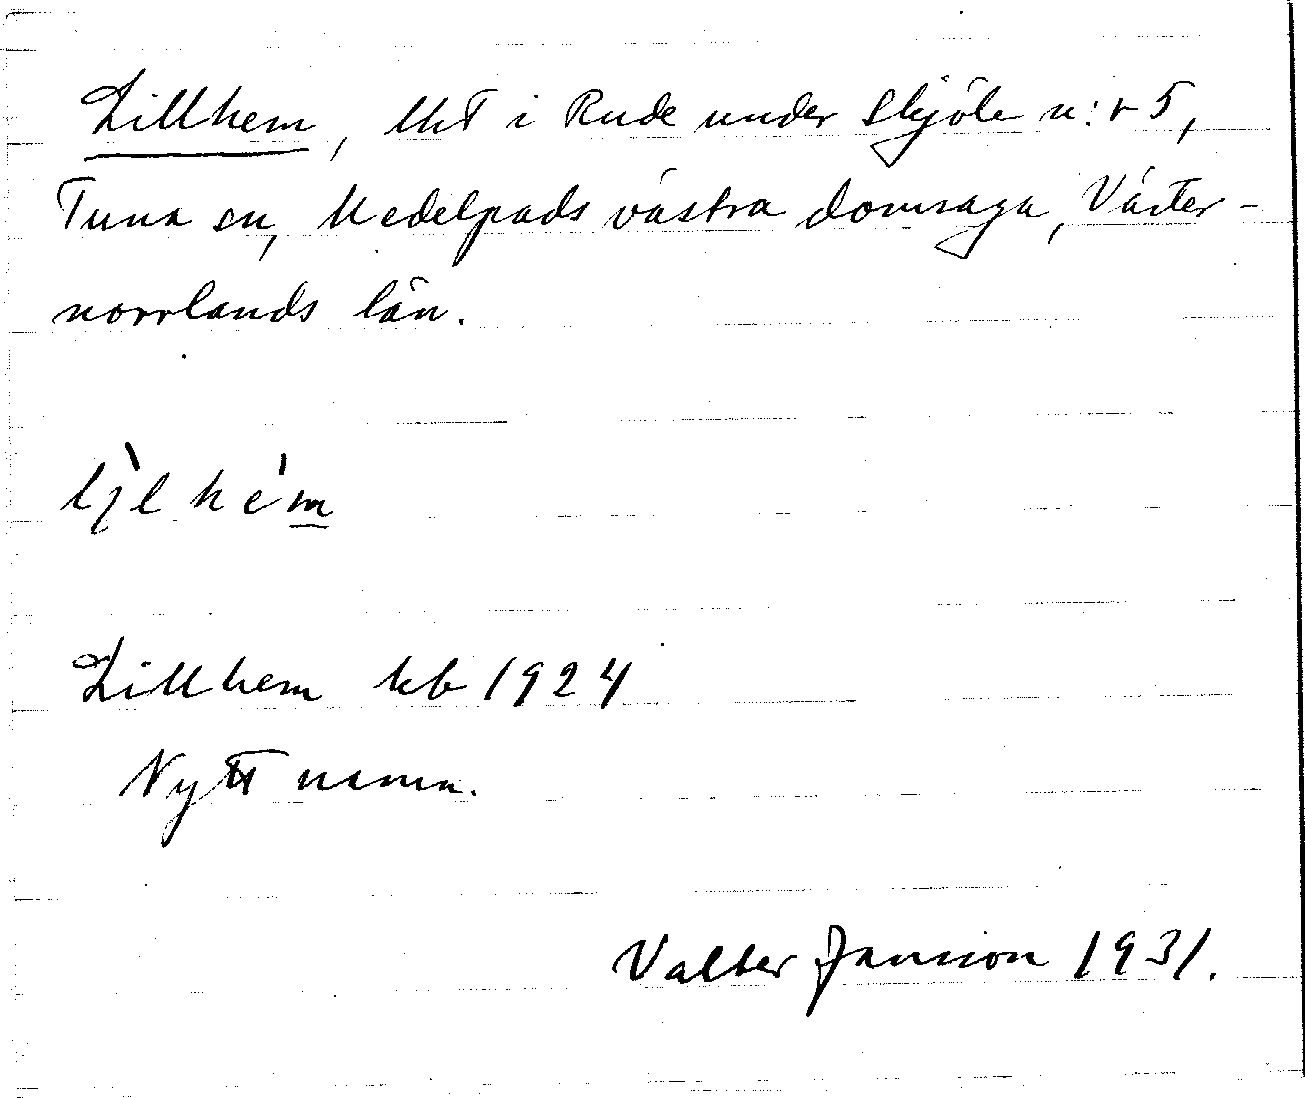 Lillhem, lht i Rude under Skjöle n:r 5,
Tuna sn, Medelpads västra domsaga, Väster-
norrlands län.
lìlhém
Lillhem kb 1924
Nytt namn.
Valter Jansson 1931.